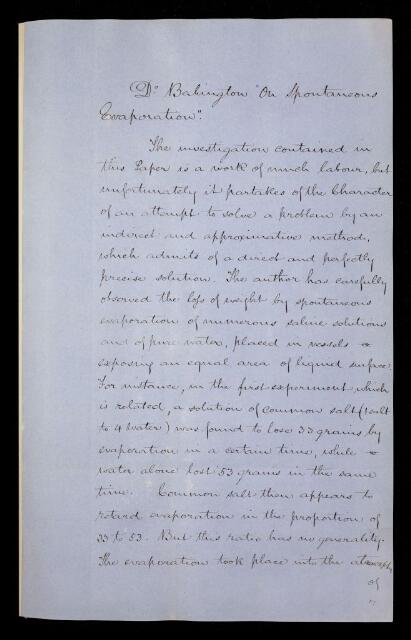 Dr Babington "On Spontaneous
Evaporation".
The investigation contained in
this Paper is a work of much labour, but
unfortunately it partakes of the Character
of an attempt to solve a problem by an
indirect and approximative method,
which admits of a direct and perfectly
precise solution. The author has carefully
observed the loss of weight by spontaneous
evaporation of numerous saline solutions
and of pure water, placed in vessels
exposing an equal area of liquid surface.
For instance, in the first experiment which
is related, a solution of common salt (1 salt
to 4 water) was found to lose 33 grains by
evaporation in a certain time, while
water alone lost 53 grains in the same
time. Common salt then appears to
retard evaporation in the proportion of
33 to 53. But this ratio has no generality.
The evaporation took place into the
of